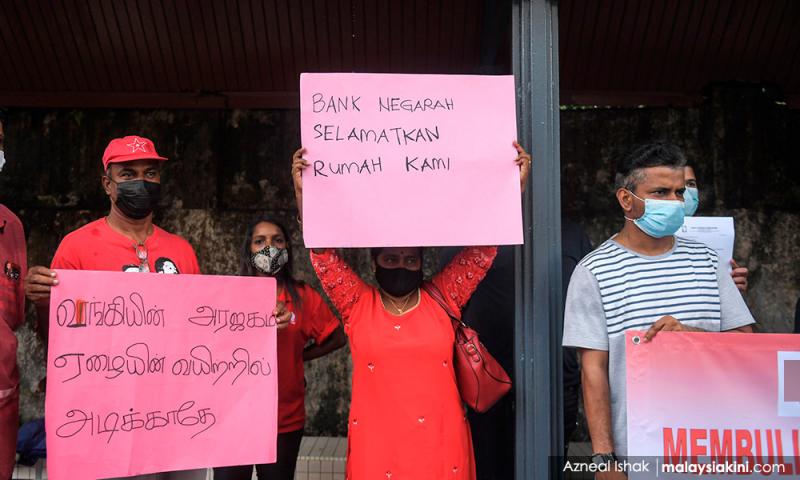 BANK NEGARAH
SELAMATKAN
RUMAH KAMI
வங்கியின் அரஜகம்
ஏழையின் வயிற்றில்
அடிக்காதே
MEMBULI
Azneal Ishak
malaysiakini.com